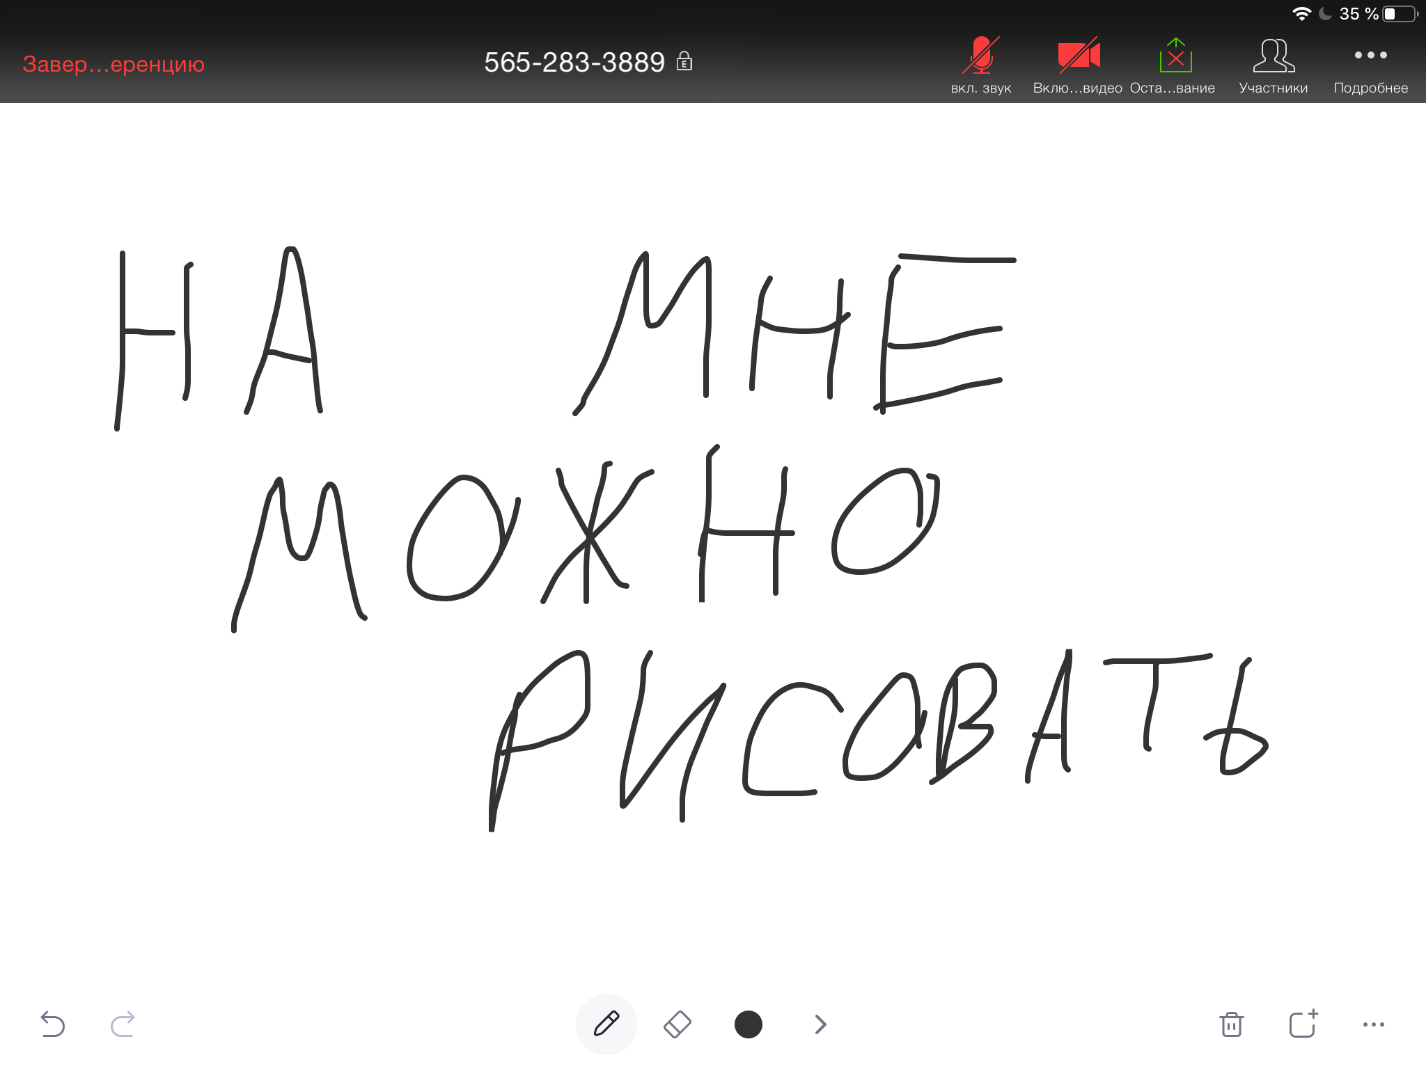 35 %
Завер...еренцию
565-283-3889
вкл. звук
Вклю...видео
Оста...вание
Участники
Подробнее
НА МНЕ
МОЖНО
РИСОВАТЬ